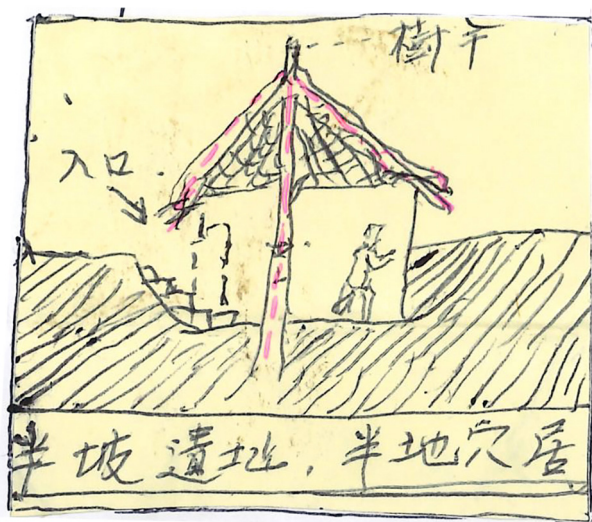 樹干
入口
半坡遺址，半地穴居